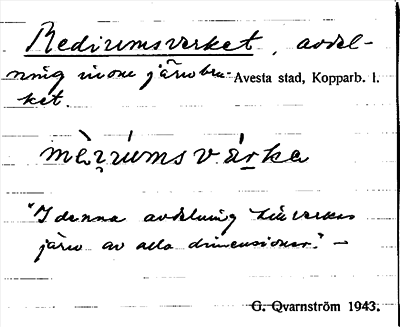 Mediumsverket, avdel-
ning inom järnbru-
ket.
Avesta stad, Kopparb. l.
mè̀ḍiumsvárka
"I denna avdelning tillverkas
järn av alla dimensioner." –
G. Qvarnström 1943.